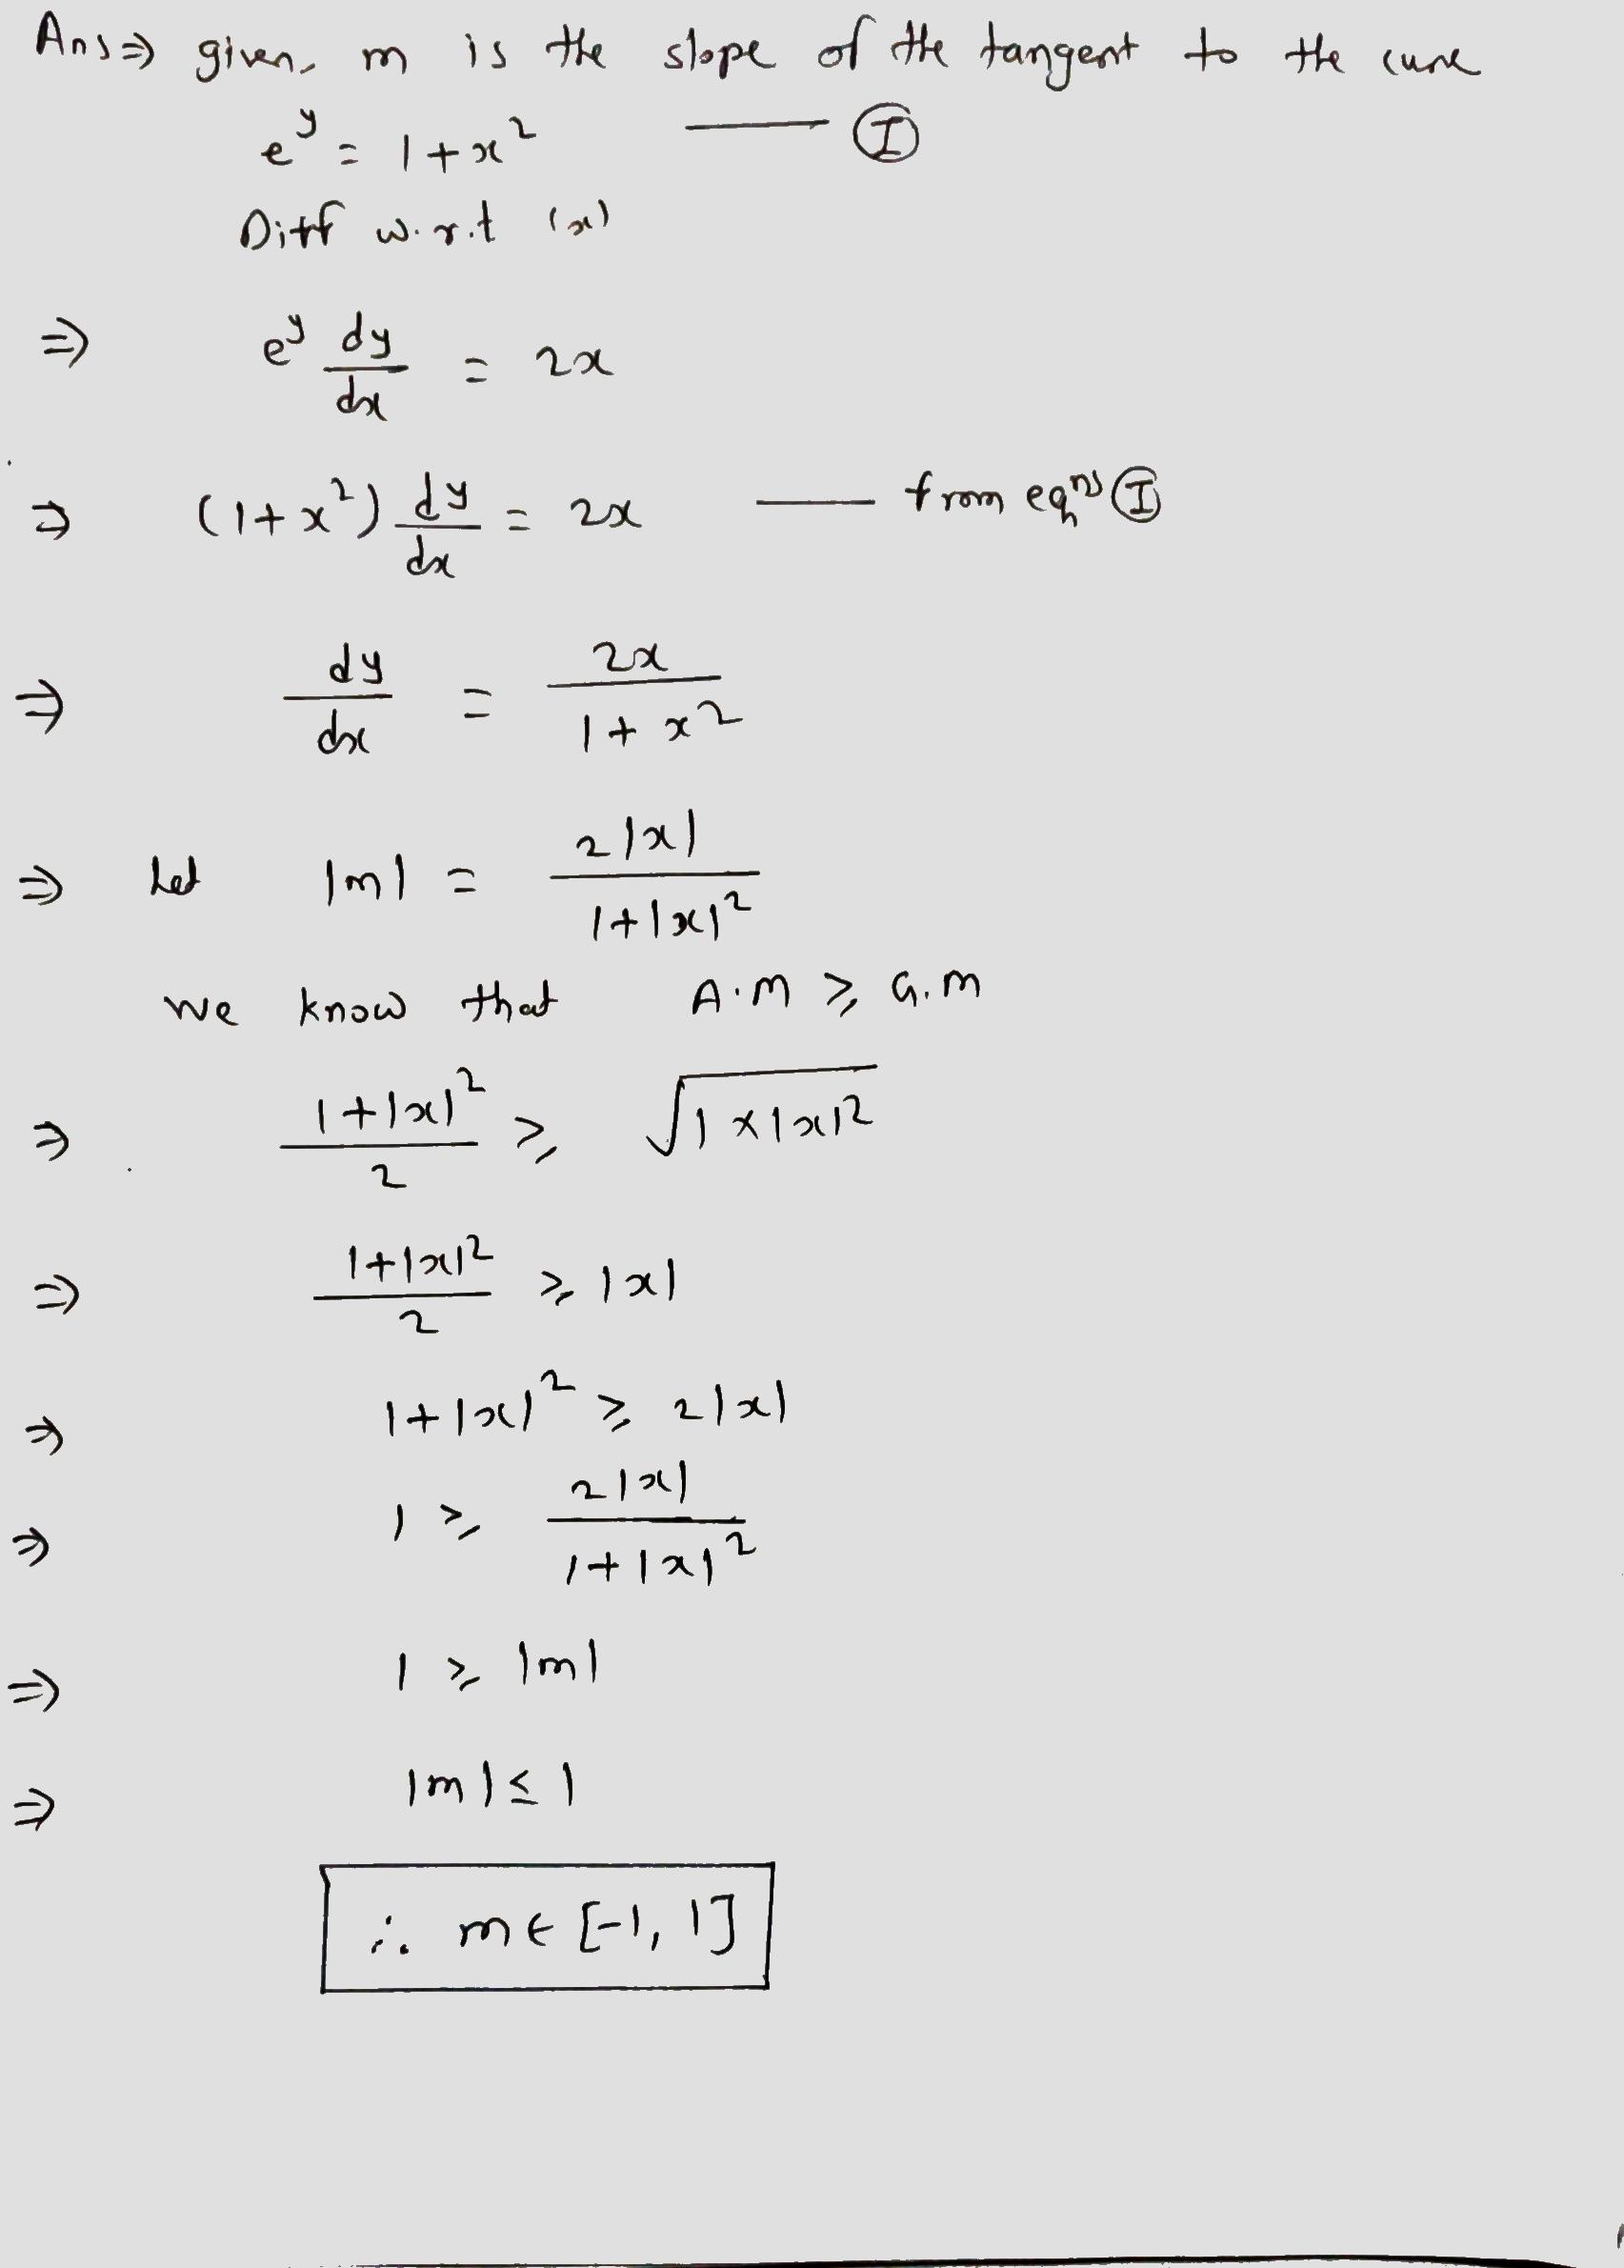 Ans ⇒ given, m is the slope of the tangent to the curve
e^y = 1 + x² —— Ⓘ
Diff w.r.t (x)
⇒ e^y dy/dx = 2x
⇒ (1 + x²) dy/dx = 2x —— from eqⁿ Ⓘ
⇒ dy/dx = 2x/(1 + x²)
⇒ Let |m| = 2|x|/(1 + |x|²)
we know that A.M ≥ G.M
⇒ (1 + |x|²)/2 ≥ √(1 × |x|²)
⇒ (1 + |x|²)/2 ≥ |x|
⇒ 1 + |x|² ≥ 2|x|
⇒ 1 ≥ 2|x|/(1 + |x|²)
⇒ 1 ≥ |m|
⇒ |m| ≤ 1
∴ m ∈ [-1, 1]